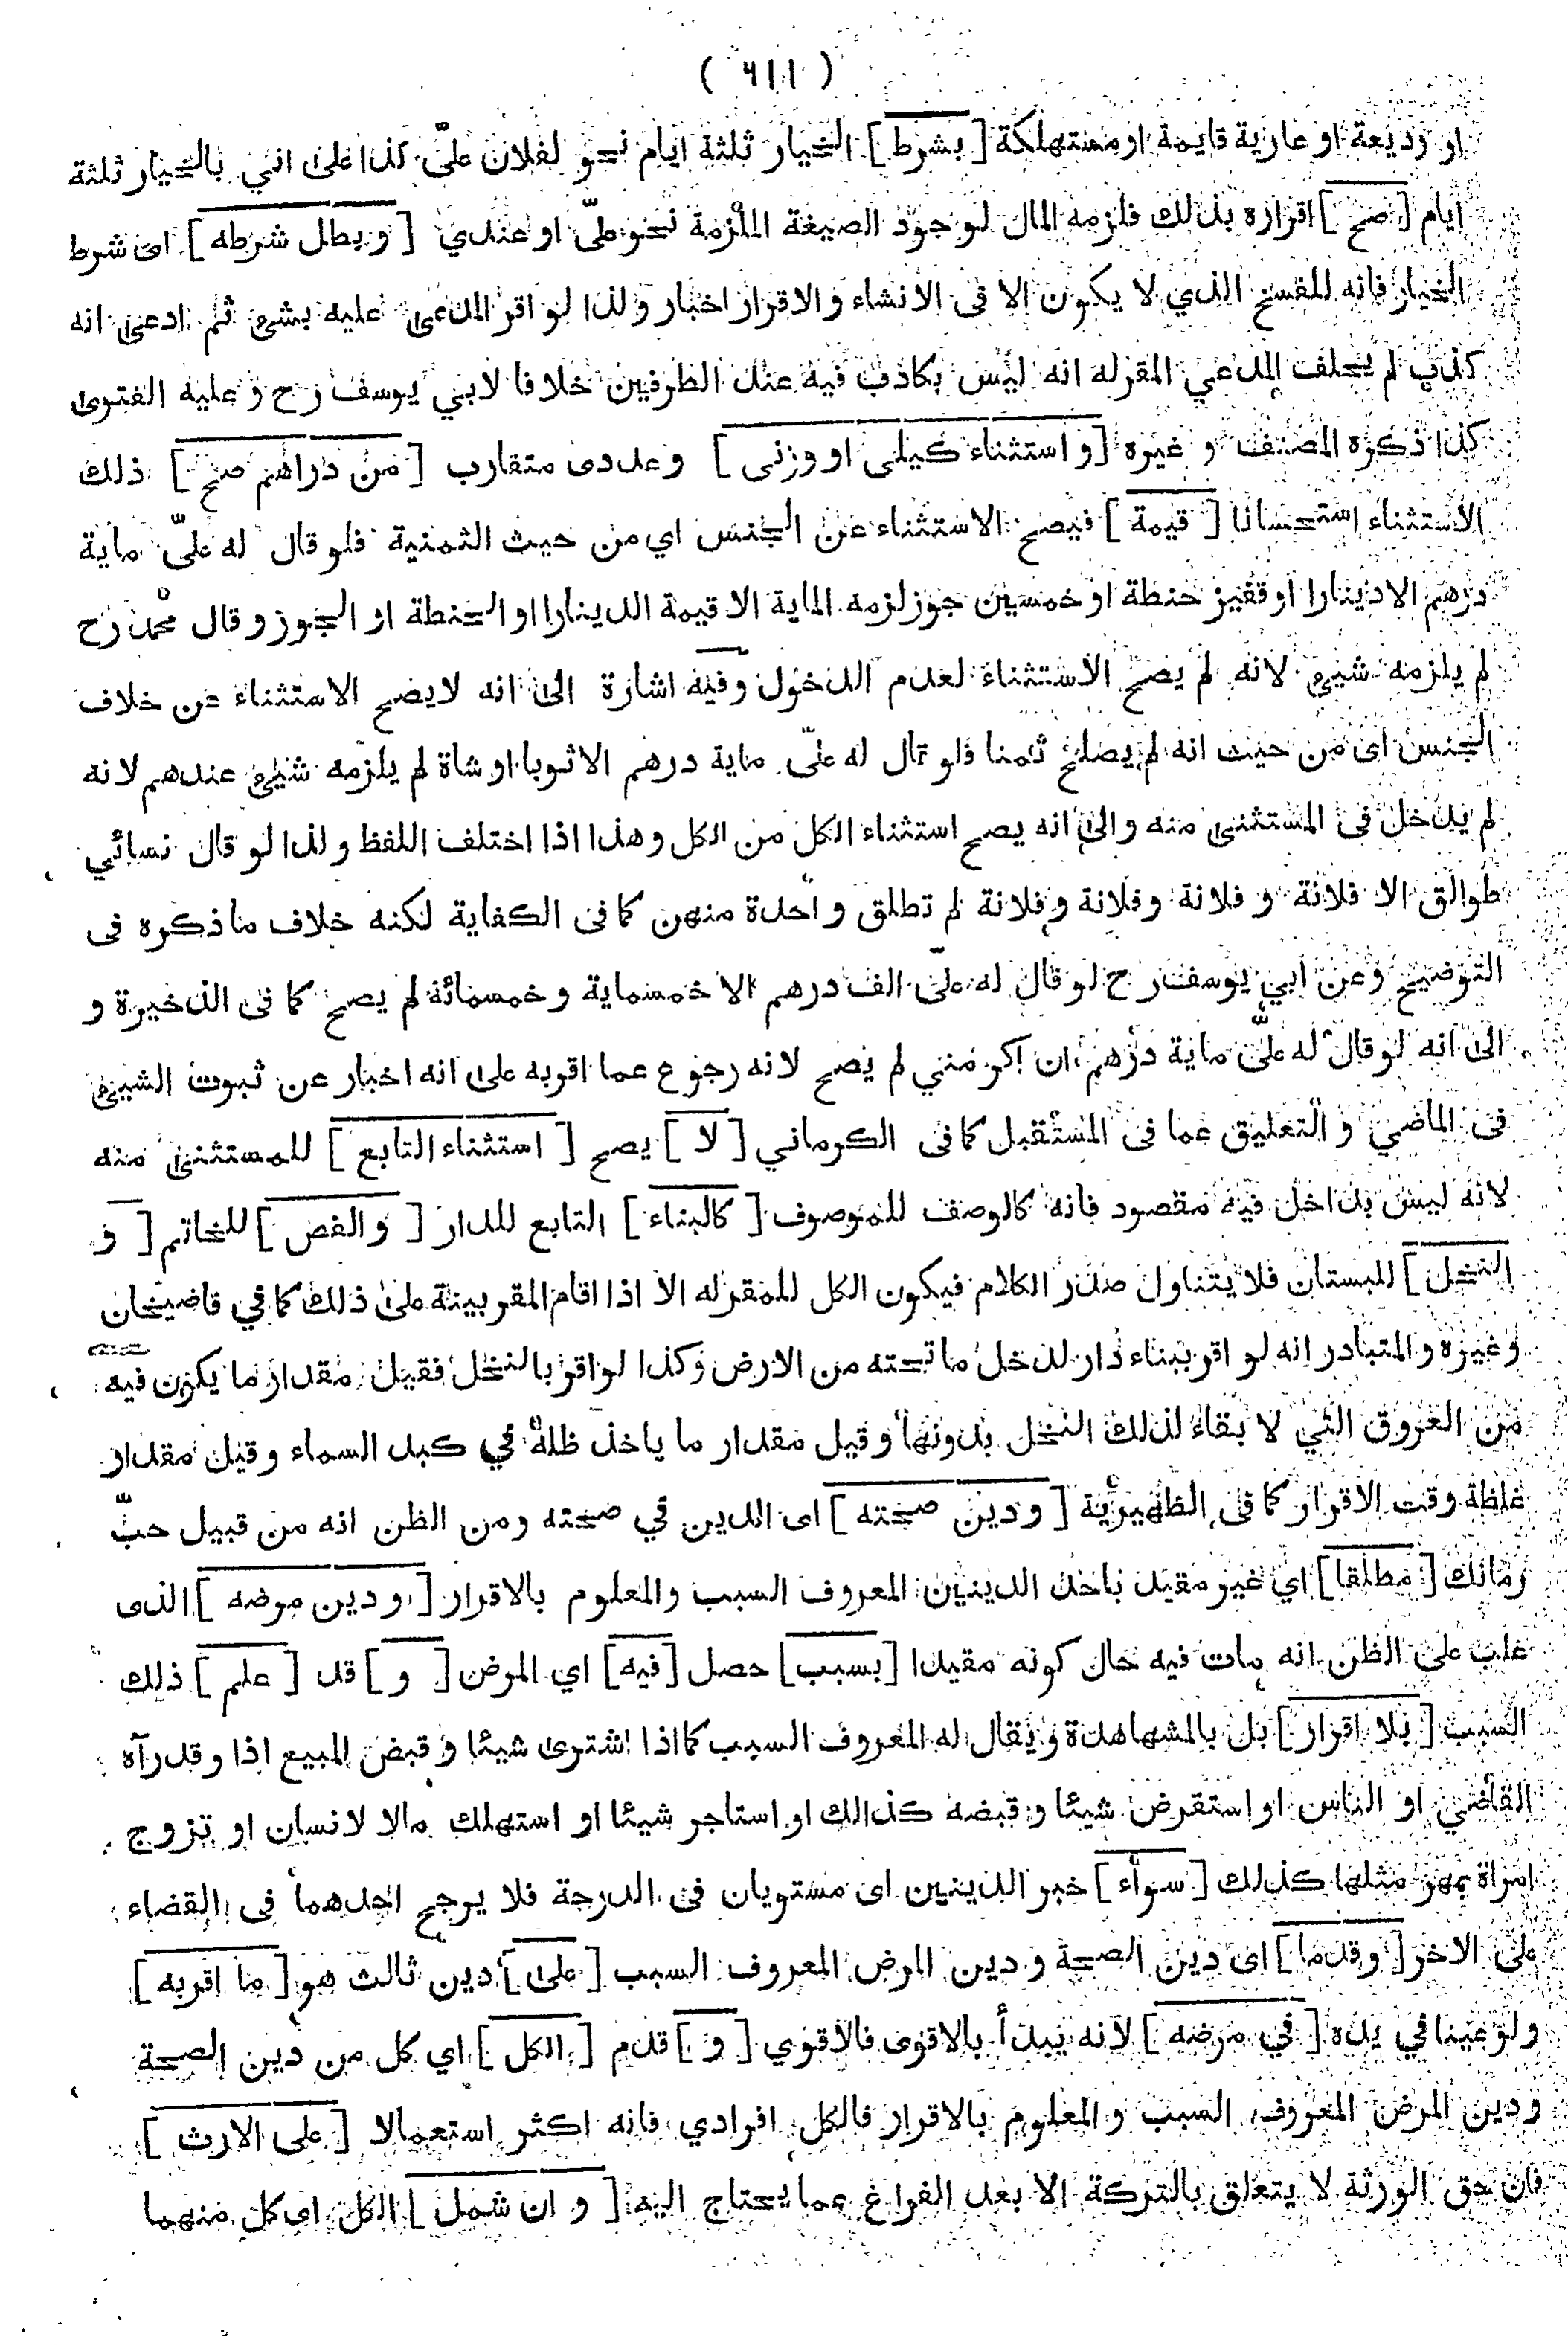 ( ٦١١ )
او رديعة او عارية قايمة او مستهلكة [ بشرط ] الخيار ثلثة ايام نحو لفلان علىّ كذا على انني بالخيار ثلثة
ايام [ صح ] اقراره بذلك فلزمه المال لوجود الصيغة الملزمة نحو علىّ او عندي [ و بطل شرطه ] اى شرط
الخيار فانه للفسخ الذي لا يكون الا فى الانشاء و الاقرار اخبار و لذا لو اقر المدعى عليه بشئ ثم ادعى انه
كذب لم يحلف المدعي المقرله انه ليس بكاذب فيه عند الطرفين خلافا لابي يوسف رح و عليه الفتوى
كذا ذكره المصنف و غيره [ و استثناء كيلى او وزنى ] وعددى متقارب [ من دراهم صح ] ذلك
الاستثناء استحسانا [ قيمة ] فيصح الاستثناء عن الجنس اي من حيث الثمنية فلو قال له علىّ ماية
درهم الا دينارا او قفيز حنطة او خمسين جوز لزمه الماية الا قيمة الدينارا او الحنطة او الجوز و قال محمد رح
لم يلزمه شيئ لانه لم يصح الاستثناء لعدم الدخول وفيه اشارة الى انه لايصح الاستثناء عن خلاف
الجنس اى من حيث انه لم يصلح ثمنا فلو قال له علىّ ماية درهم الا ثوبا او شاة لم يلزمه شيئ عندهم لانه
لم يدخل فى المستثنى منه والى انه يصح استثناء الكل من الكل و هذا اذا اختلف اللفظ و لذا لو قال نسائي
طوالق الا فلانة و فلانة وفلانة وفلانة لم تطلق واحدة منهن كما فى الكفاية لكنه خلاف ما ذكره فى
التوضيح وعن ابي يوسف رح لو قال له علىّ الف درهم الا خمسماية و خمسمائة لم يصح كما فى الذخيرة و
الى انه لو قال له علىّ ماية درهم ان اكرمتني لم يصح لانه رجوع عما اقربه على انه اخبار عن ثبوت الشيئ
فى الماضي و التعليق عما فى المستقبل كما فى الكرماني [ لا ] يصح [ استثناء التابع ] للمستثنى منه
لانه ليس بداخل فيه مقصود فانه كالوصف للموصوف [ كالبناء ] التابع للدار [ والفص ] للخاتم [ و
النخل ] للبستان فلا يتناول صدر الكلام فيكون الكل للمقرله الا اذا اقام المقر بينة على ذلك كما في قاضيخان
وغيره و المتبادر انه لو اقر ببناء دار لدخل ما تحته من الارض وكذا لو اقر بالنخل فقيل مقدار ما يكون فيه
من العروق التي لا بقاء لذلك النخل بدونها و قيل مقدار ما ياخذ ظله في كبد السماء و قيل مقدار
غلظة وقت الاقرار كما فى الظهيرية [ و دين صحته ] اى الدين في صحته ومن الظن انه من قبيل حبّ
رمانك [ مطلقا ] اي غير مقيد باحد الدينين المعروف السبب والمعلوم بالاقرار [ و دين مرضه ] الذى
غلب على الظن انه مات فيه حال كونه مقيدا [ بسبب ] حصل [ فيه ] اي المرض [ و ] قد [ علم ] ذلك
السبب [ بلا اقرار ] بل بالمشهاهدة و يقال له المعروف السبب كما اذا اشترى شيئا و قبض المبيع اذا و قد رآه
القاضي او الناس او استقرض شيئا و قبضه كذالك او استاجر شيئا او استهلك مالا لانسان او تزوج
امراة بمهر مثلها كذلك [ سواء ] خبر الدينين اى مستويان فى الدرجة فلا يرجح احدهما فى القضاء
على الاخر [ وقدما ] اى دين الصحة و دين المرض المعروف السبب [ على ] دين ثالث هو [ ما اقربه ]
ولو عينا في يده [ في مرضه ] لانه يبدأ بالاقوى فالاقوي [ و ] قدم [ الكل ] اي كل من دين الصحة
ودين المرض المعروف السبب و المعلوم بالاقرار فالكل افرادي فانه اكثر استعمالا [ على الارث ]
فان حق الورثة لا يتعلق بالتركة الا بعد الفراغ عما يحتاج اليه [ و ان شمل ] الكل اى كل منهما